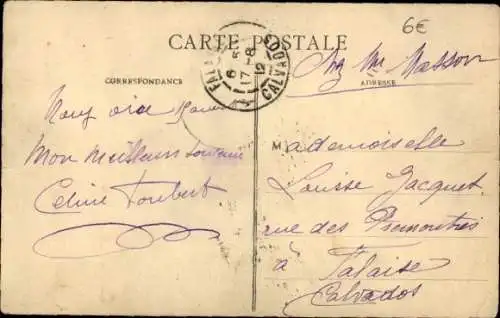 6€
CARTE POSTALE
CORRESPONDANCE
ADRESSE
FALAISE
6 5
17-8
12
CALVADOS
Mon meilleur souvenir
Celine Joubert
Mademoiselle
Louise Jacquet
rue des Prémontrés
à Falaise
Calvados